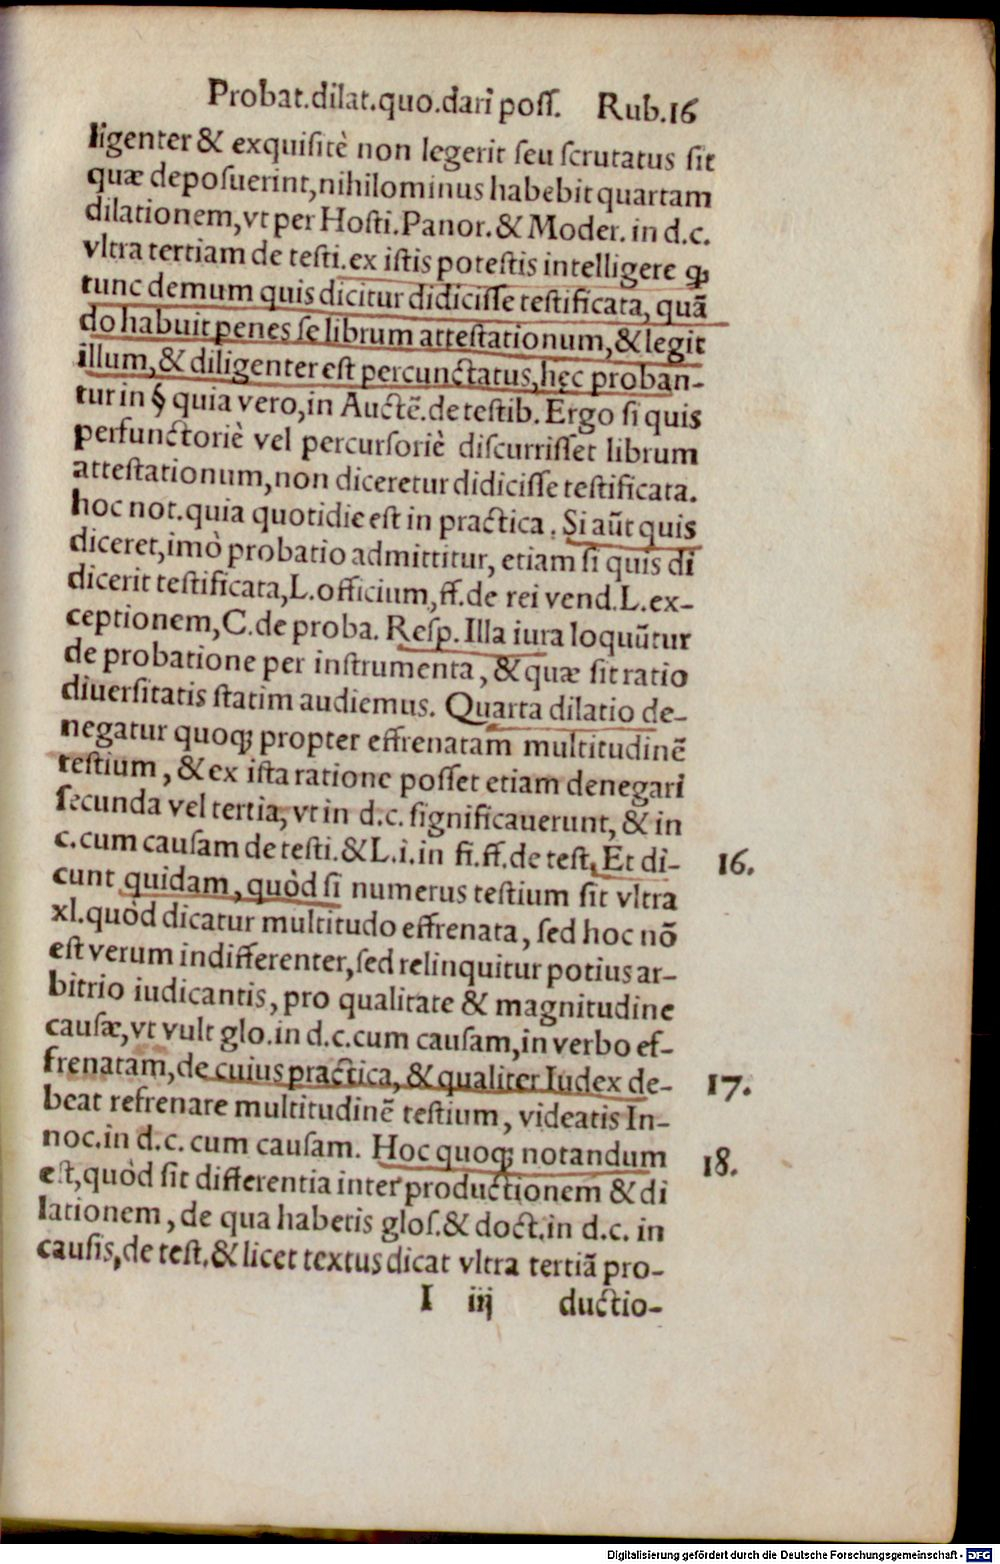 Probat.dilat.quo.dari poſſ. Rub.16
ligenter & exquiſitè non legerit ſeu ſcrutatus ſit
quæ depoſuerint,nihilominus habebit quartam
dilationem,vt per Hoſti.Panor.& Moder. in d.c.
vltra tertiam de teſti.ex iſtis poteſtis intelligere ꝙ
tunc demum quis dicitur didiciſſe teſtificata, quã
do habuit penes ſe librum atteſtationum,& legit
illum,& diligenter eſt percunctatus,hęc proban-
tur in § quia vero,in Auctẽ.de teſtib. Ergo ſi quis
perfunctoriè vel percurſoriè diſcurriſſet librum
atteſtationum,non diceretur didiciſſe teſtificata.
hoc not.quia quotidie eſt in practica. Si aũt quis
diceret,imò probatio admittitur, etiam ſi quis di
dicerit teſtificata,L.officium,ff.de rei vend.L.ex-
ceptionem,C.de proba. Reſp.Illa iura loquũtur
de probatione per inſtrumenta, & quæ ſit ratio
diuerſitatis ſtatim audiemus. Quarta dilatio de-
negatur quoqꝫ propter effrenatam multitudinẽ
teſtium, & ex iſta ratione poſſet etiam denegari
ſecunda vel tertia, vt in d.c. ſignificauerunt, & in
c.cum cauſam de teſti.& L.i.in fi.ff.de teſt. Et di- 16.
cunt quidam, quòd ſi numerus teſtium ſit vltra
xl.quòd dicatur multitudo effrenata, ſed hoc nõ
eſt verum indifferenter,ſed relinquitur potius ar-
bitrio iudicantis, pro qualitate & magnitudine
cauſæ,vt vult glo.in d.c.cum cauſam,in verbo ef-
frenatam,de cuius practica, & qualiter Iudex de- 17.
beat refrenare multitudinẽ teſtium, videatis In-
noc.in d.c. cum cauſam. Hoc quoqꝫ notandum 18.
eſt,quòd ſit differentia inter productionem & di
lationem, de qua habetis gloſ.& doct.in d.c. in
cauſis,de teſt.& licet textus dicat vltra tertiã pro-
I iij ductio-
Digitalisierung gefördert durch die Deutsche Forschungsgemeinschaft - DFG